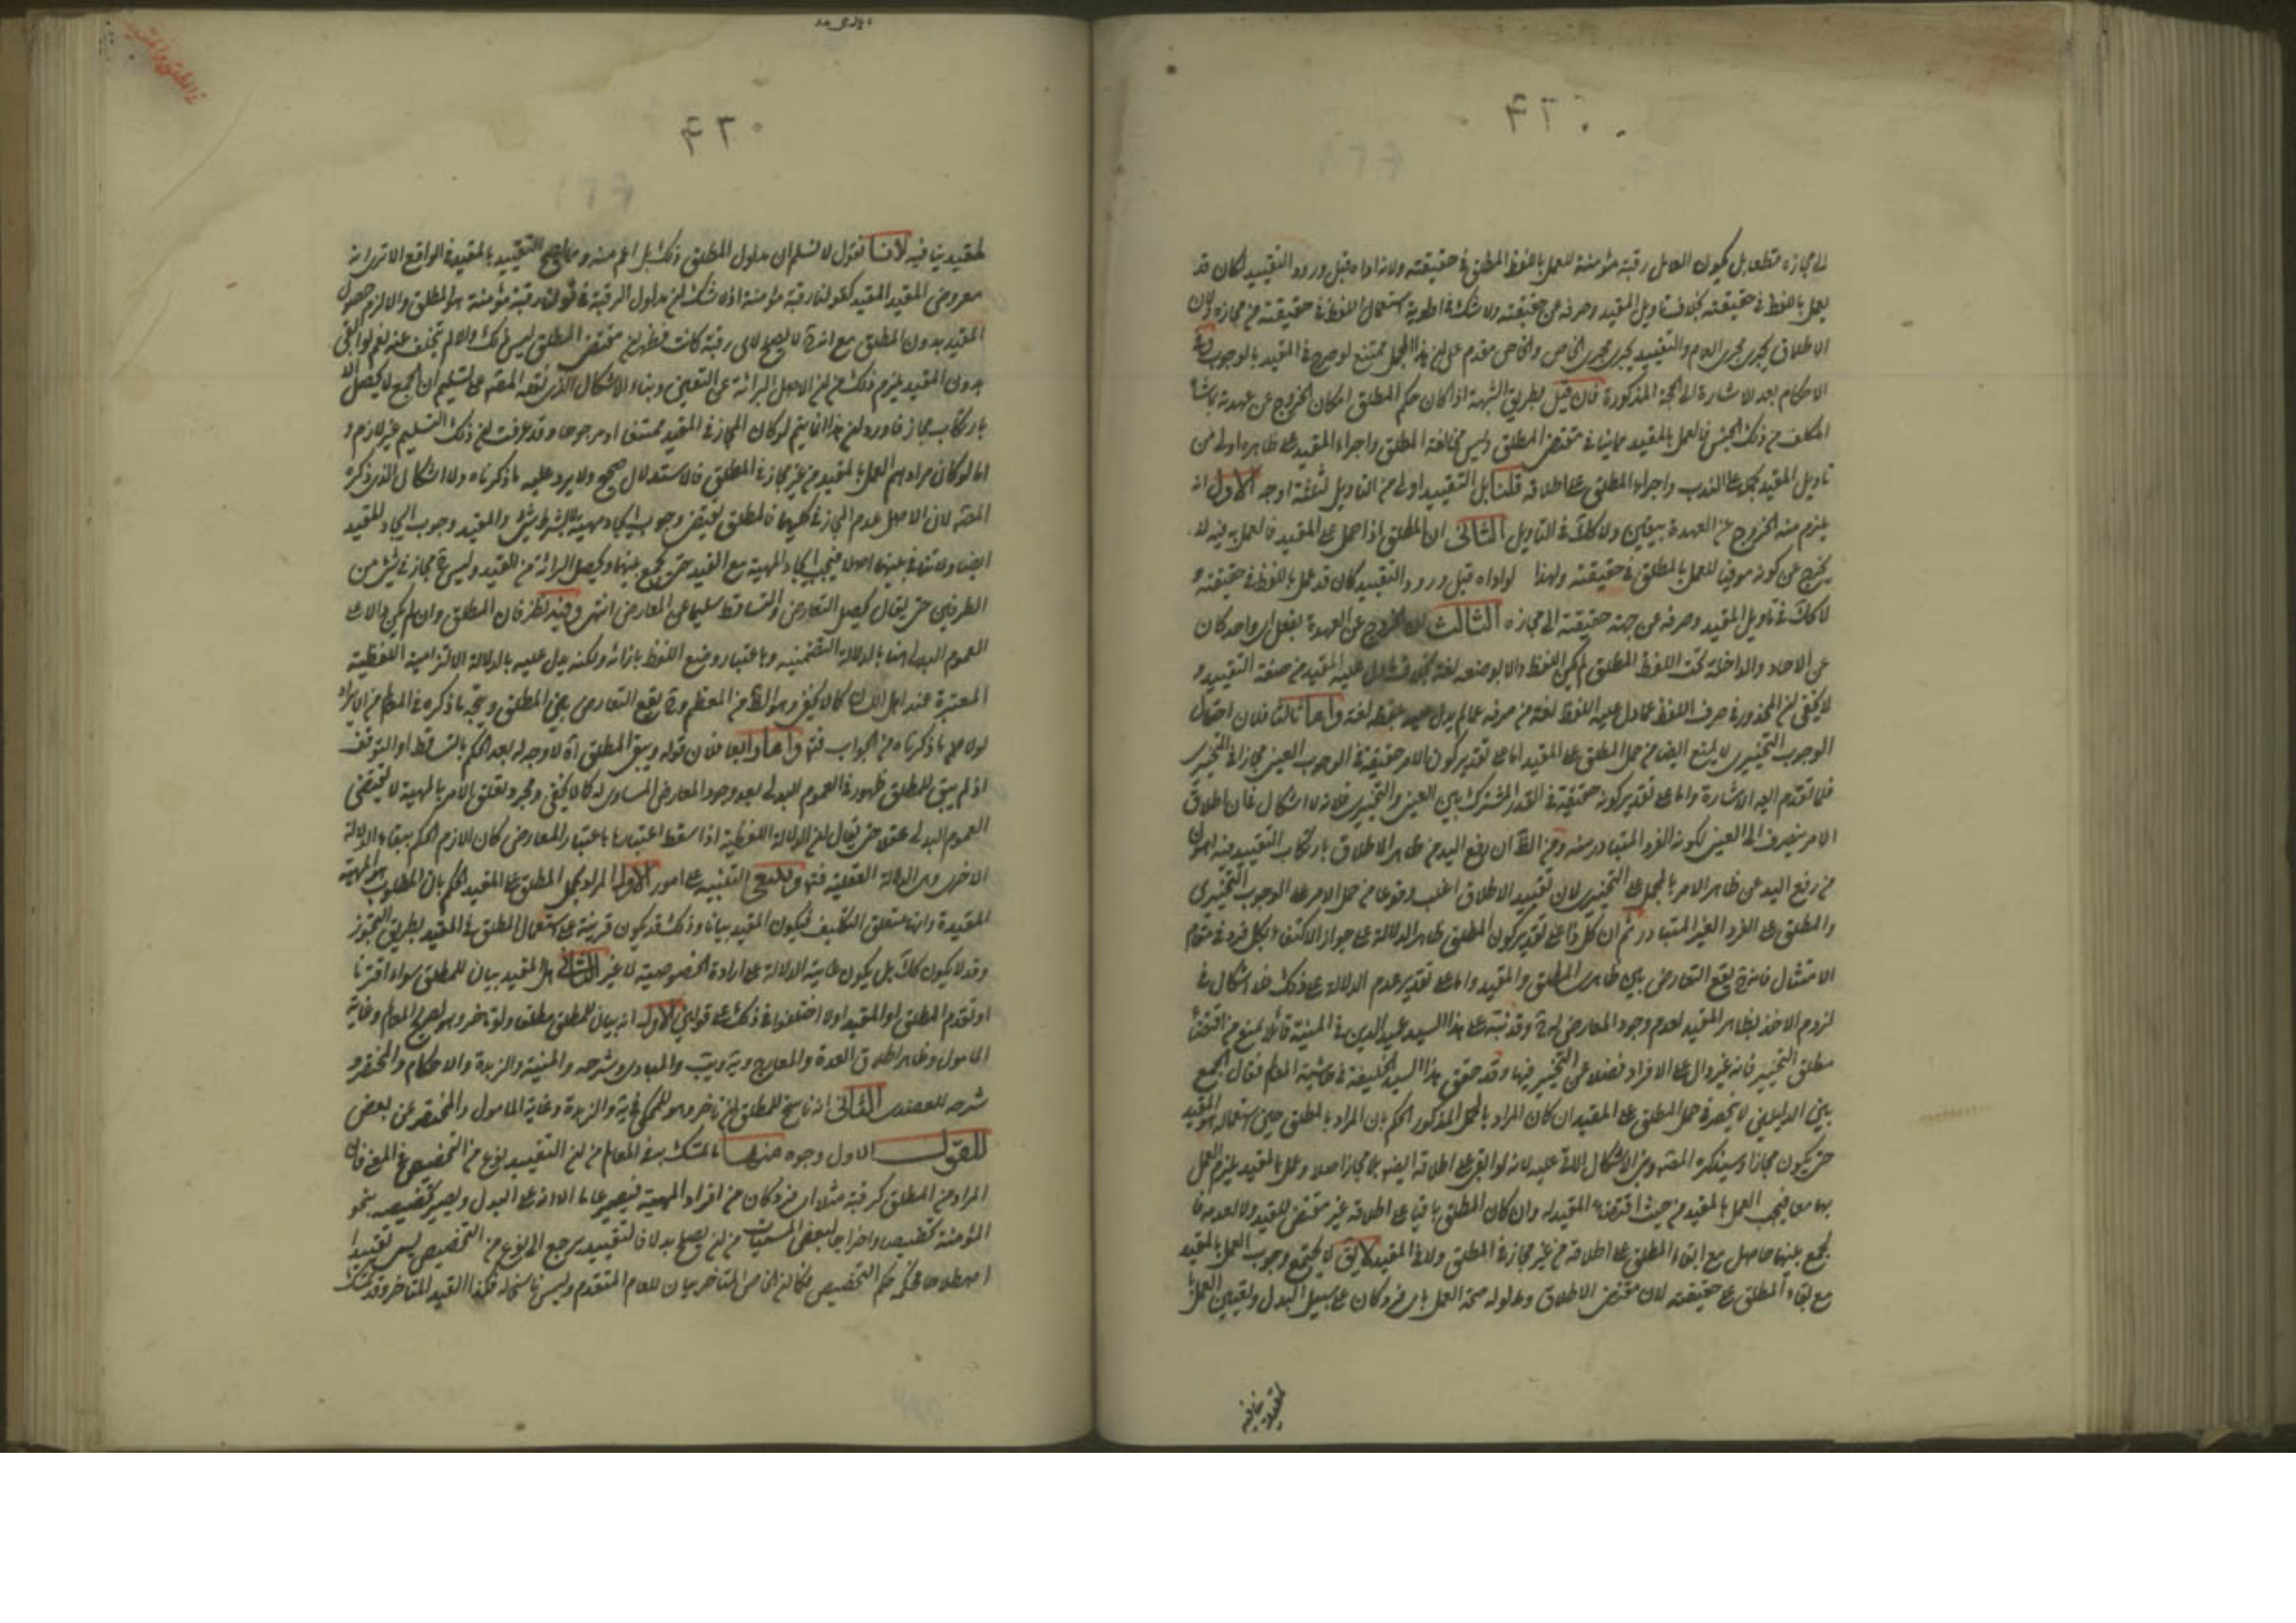 الى مجازه قطعا بل يكون العامل رقبة مؤمنة للعمل باللفظ المطلق في حقيقته ولانه اداه قبل ورود التقييد لكان قد
يعمل باللفظ في حقيقته بخلاف تاويل المقيد وصرفه عن حقيقته ولا شك في اولوية استعمال اللفظ في حقيقته من مجازه ولان
الاطلاق يجرى مجرى العام والتقييد يجرى مجرى الخاص والخاص مقدم على ان هذا الحمل ممتنع لو صرح في المقيد بالوجوب
الاحكام بعد الاشارة الى الحجة المذكورة فان قيل بطريق الشبهة اذا كان حكم المطلق امكان الخروج عن عهدته بما شاء
المكلف من ذلك الجنس فالعمل بالمقيد مما ينافي مقتضى المطلق وليس مخالفة المطلق واجراء المقيد على ظاهره اولى من
تاويل المقيد بحمله على الندب واجراء المطلق على اطلاقه قلنا بل التقييد اولى من التاويل لثلثة اوجه الاول انه
يلزم منه الخروج عن العهدة بيقين ولا كك في التاويل الثاني ان المطلق اذا حمل على المقيد فالعمل به فيه لا
يخرج عن كونه موفيا للعمل بالمطلق في حقيقته ولهذا لو اداه قبل ورود التقييد كان قد عمل باللفظ في حقيقته و
لا كك في تاويل المقيد وصرفه عن جهة حقيقته الى مجازه الثالث ان الخروج عن العهدة بفعل اى واحد كان
من الاحاد والداخلة تحت اللفظ المطلق لم يكن اللفظ دالا بوضعه لغة بخلاف ما دل عليه المقيد من صفة التقييد و
لا يخفى ان المحذور في صرف اللفظ عما دل عليه اللفظ لغة من صرفه عما لم يدل عليه بلفظه لغة واما ثالثا فلان احتمال
الوجوب التخييرى لا يمنع ايضا من حمل المطلق على المقيد اما على تقدير كون الامر حقيقة في الوجوب العينى مجازا في التخيير
فلما تقدم اليه الاشارة واما على تقدير كونه حقيقة في القدر المشترك بين العينى والتخييرى فلانه لا اشكال في ان اطلاق
الامر ينصرف الى العينى لكونه الفرد المتبادر منه ومن الظ ان رفع اليد من ظاهر الاطلاق بارتكاب التقييد فيه اهون
من رفع اليد عن ظاهر الامر بالحمل على التخييرى لان تقييد الاطلاق اغلب وقوعا من حمل الامر على الوجوب التخييرى
والمطلق على الفرد الغير المتبادر ثم ان كل ذا على تقدير كون المطلق ظاهر الدلالة على جواز الاكتفاء بكل فرد في مقام
الامتثال فانه ح يقع التعارض بين ظاهرى المطلق والمقيد واما على تقدير عدم الدلالة على ذلك فلا اشكال في
لزوم الاخذ بظاهر المقيد لعدم وجود المعارض له ح وقد نبه على هذا السيد عميد الدين في المنية قائلا بمنع من اقتضاء
مطلق التخيير فانه غير دال على الافراد فضلا عن التخيير فيها وقد حقق هذا السيد الخليفة في حاشية المعالم فقال الجمع
بين الدليلين لا ينحصر في حمل المطلق على المقيد ان كان المراد بالحمل المذكور الحكم بان المراد بالمطلق حين استعماله هو المقيد
حتى يكون مجازا وسيذكره المصنف ومن الاشكال الاتي عليه لانه لو ابقى على اطلاقه ايضا بلا مجاز اصلا وعمل بالمقيد يلزم العمل
بهما معا فيجب العمل بالمقيد من حيث اقتضاء المقيد له وان كان المطلق باقيا على اطلاقه غير مقتض للقيد ولا لعدمه فا
لجمع بينهما حاصل مع ابقاء المطلق على اطلاقه من غير مجاز في المطلق ولا في المقيد لا يق لا يجتمع وجوب العمل بالمقيد
مع بقاء المطلق على حقيقته لان مقتضى الاطلاق ومدلوله صحة العمل باى فرد كان على سبيل البدل وتعيين العمل
لمقيد ينافيه
في المطلق والمقيد
لمقيد ينافيه لانا نقول لا نسلم ان مدلول المطلق ذلك بل اعم منه ومما يصح التقييد بالمقيد في الواقع الا ترى انه
معروض المقيد المقيد كقولنا رقبة مؤمنة اذ لا شك ان مدلول الرقبة في قولنا رقبة مؤمنة هو المطلق والا لزم حصول
المقيد بدون المطلق مع انه ح لا يصلح لاى رقبة كانت فظهر ان مقتضى المطلق ليس ذلك والا لم يتخلف عنه نعم لو ابقى
بدون المقيد يلزم ذلك من ان الاصل البرائة عن التعيين وبناء الاشكال الذى نقله المصنف على تسليم ان الجمع لا يحصل الا
بارتكاب مجاز فاورد ان هذا انما يتم لو كان المجاز في المقيد ممتنعا او مرجوحا وقد عرفت ان ذلك التسليم غير لازم و
اما لو كان مرادهم العمل بالمقيد من غير مجاز في المطلق فالاستدلال صحيح ولا يرد عليه ما ذكرناه ولا الاشكال الذى ذكره
المصنف لان الاصل عدم المجاز في كليهما فالمطلق يقتضى وجوب ايجاد مهية بلا شرط شئ والمقيد وجوب ايجاد المقيد
ايضا ولا تنافي بينهما اصلا فيجب ايجاد المهية مع القيد حتى يجمع بينهما ويحصل البرائة من القيد وليس ح مجاز في شئ من
الطرفين حتى يقال يحصل التعارض والتساقط سليما عن المعارض انتهى وفيه نظر فان المطلق وان لم يكن دالا على
العموم البدلى وضعا بالدلالة التضمنية وباعتبار وضع اللفظ بازائه ولكنه يدل عليه بالدلالة الالتزامية اللفظية
المعتبرة عند اهل اللسان كما لا يخفى وهو الظ من المعظم وح يقع التعارض بين المطلق ويتجه ما ذكره في المعالم من الايراد
لولا ما ذكرناه من الجواب فتم واما رابعا فلان قوله ويبقى المطلق اه لا وجه له بعد الحكم بالتساقط او التوقف
اذ لم يبق للمطلق ظهور في العموم البدلى بعد وجود المعارض المساوى له كما لا يخفى ومجرد تعلق الامر بالمهية لا يقتضى
العموم البدلى عقلا حتى يقال ان الدلالة اللفظية اذا سقط اعتبارها باعتبار المعارض كان اللازم الحكم ببقاء الدلالة
الاخرى وهى الدلالة العقلية فتم وينبغى التنبيه على امور الاول المراد بحمل المطلق على المقيد الحكم بان المطلوب هو المهية
المقيدة وانها متعلق التكليف فيكون المقيد بيانا وذلك قد يكون قرينة على استعمال المطلق في المقيد بطريق التجوز
وقد لا يكون كك بل يكون غايته الدلالة على ارادة الخصوصية لا غير الثاني هل المقيد بيان للمطلق سواء اقترنا
او تقدم المطلق او المقيد او لا اختلفوا في ذلك على قولين الاول انه بيان للمطلق مطلقا ولو تاخر وهو لصريح المعالم وغاية
المامول وظاهر اطلاق العدة والمعارج وية ويب والمبادى وشرحه والمنية والزبدة والاحكام والمختصر و
شرحه للعضدى الثاني انه ناسخ للمطلق ان تاخر وهو للمحكى في ية والزبدة وغاية المامول والمختصر عن بعض
للقول الاول وجوه منها ما تمسك به في المعالم من ان التقييد نوع من التخصيص في المعنى فان
المراد من المطلق كرقبة مثلا اى فرد كان من افراد المهية فيصير عاما الا انه على البدل ويصير تخصيصه بنحو
المؤمنة تخصيصا واخراجا لبعض المسميات من ان يصلح بدلا فالتقييد يرجع الى نوع من التخصيص يسمى تقييدا
اصطلاحا فحكمه حكم التخصيص فكما ان الخاص المتاخر بيان للعام المتقدم وليس ناسخا له فكذا القيد المتاخر وقد تمسك